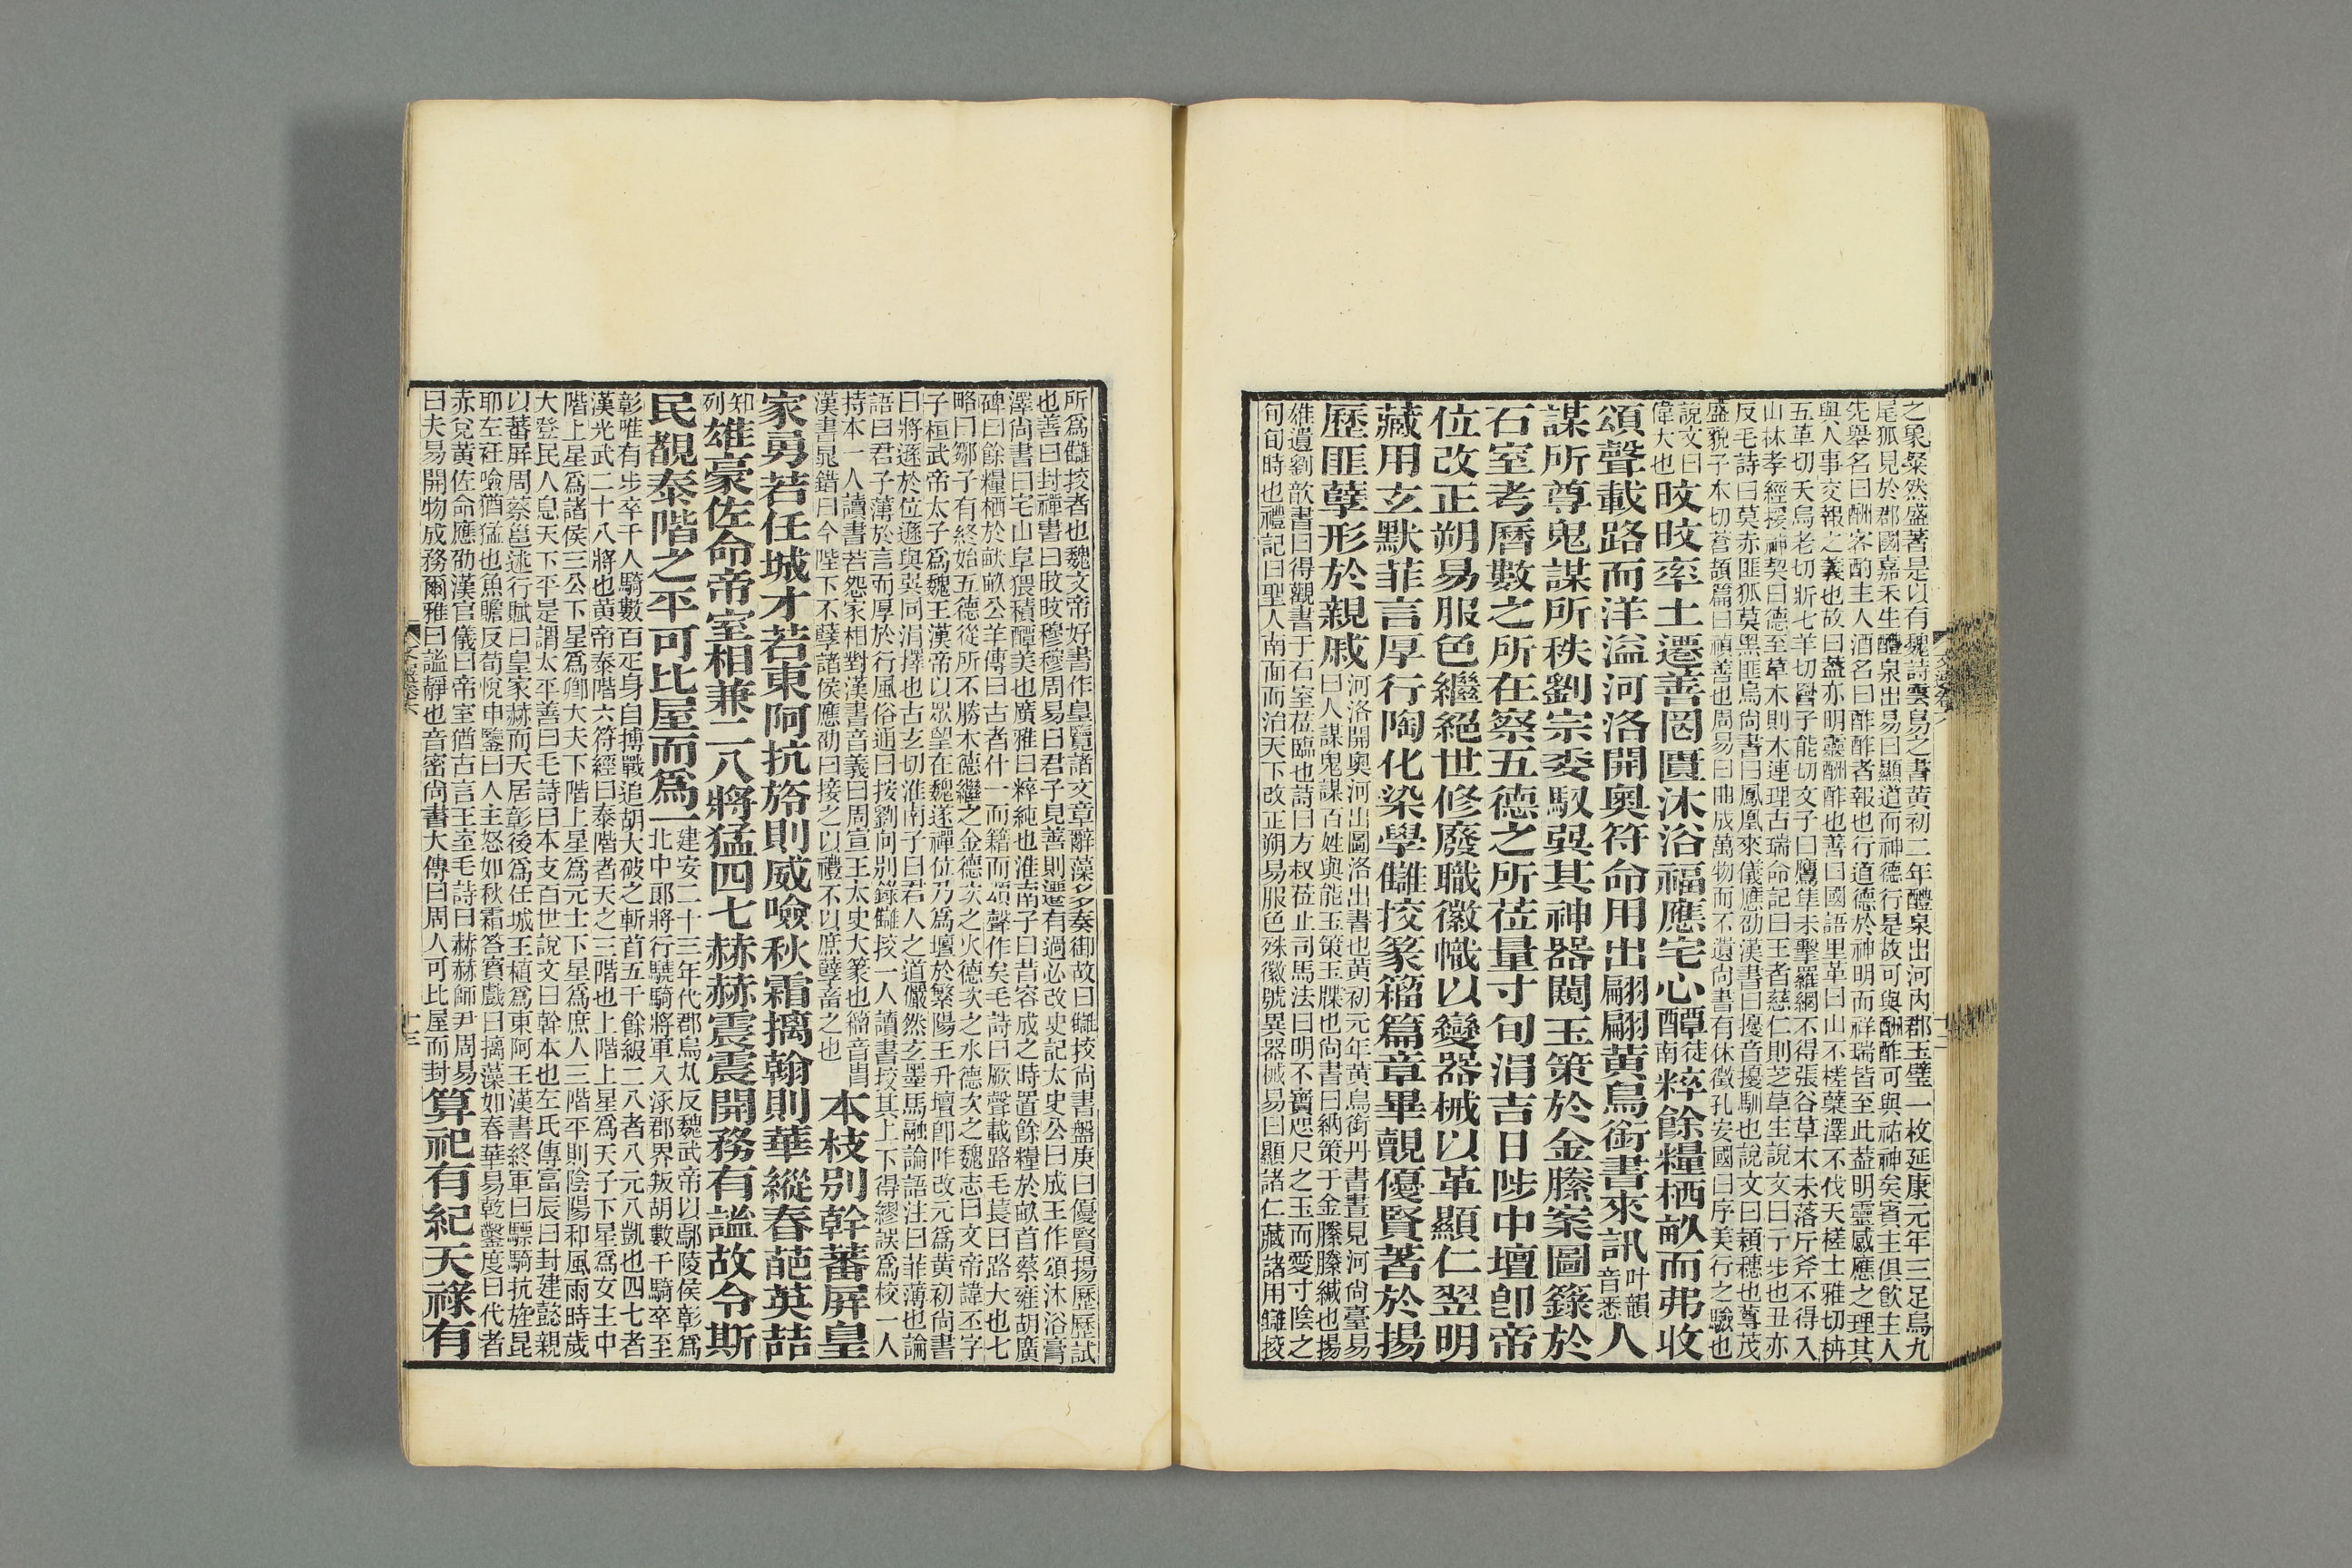 之象粲然盛著是以有魏詩雲鳥之書黃初二年醴泉出河內郡玉璧一枚延康元年三足烏九
尾狐見於郡國嘉禾生醴泉出易曰顯道而神德行是故可與酬酢可與祐神矣賓主俱飲主人
先舉名曰酬客酌主人酒名曰酢酢者報也行道德於神明而祥瑞皆至此葢明靈感應之理其
與人事交報之義也故曰葢亦明靈酬酢也善曰國語里革曰山不槎蘖澤不伐夭槎士雅切枿
五革切夭烏老切斨七羊切罾子能切文子曰鷹隼未擊羅網不得張谷草木未落斤斧不得入
山林孝經援神契曰德至草木則木連理古瑞命記曰王者慈仁則芝草生說文曰亍步也丑亦
反毛詩曰莫赤匪狐莫黑匪烏尚書曰鳳凰來儀應劭漢書曰擾音擾馴也說文曰穎穗也蓴茂
盛貌子本切蒼頡篇曰禎善也周易曰曲成萬物而不遺尚書有休徵孔安國曰序美行之驗也
說文曰偉大也旼旼率土遷善罔匱沐浴福應宅心醰徒南粹餘糧栖畝而弗收
頌聲載路而洋溢河洛開奧符命用出翩翩黃鳥銜書來訊叶韻音悉人
謀所尊鬼謀所秩劉宗委馭巽其神器闚玉策於金縢案圖籙於
石室考曆數之所在察五德之所莅量寸旬涓吉日陟中壇卽帝
位改正朔易服色繼絕世修廢職徽幟以變器械以革顯仁翌明
藏用玄默菲言厚行陶化染學讎挍篆籀篇章畢覿優賢著於揚
歷匪孽形於親戚河洛開奧河出圖洛出書也黃初元年黃鳥銜丹書晝見河尚臺易
曰人謀鬼謀百姓與能玉策玉牒也尚書曰納策于金縢縢緘也揚
雄遺劉歆書曰得觀書于石室莅臨也詩曰方叔莅止司馬法曰明不寶咫尺之玉而愛寸陰之
旬旬時也禮記曰聖人南面而治天下改正朔易服色殊徽號異器械易曰顯諸仁藏諸用讎挍
所爲讎挍者也魏文帝好書作皇覽諸文章辭藻多奏御故曰讎挍尚書盤庚曰優賢揚歷歷試
也善曰封禪書曰旼旼穆穆周易曰君子見善則遷有過必改史記太史公曰成王作頌沐浴膏
澤尚書曰宅山阜猥積醰美也廣雅曰粹純也淮南子曰昔容成之時置餘糧於畝首蔡雍胡廣
碑曰餘糧栖於畎畝公羊傳曰古者什一而籍而頌聲作矣毛詩曰厥聲載路毛萇曰路大也七
略曰鄒子有終始五德從所不勝木德繼之金德次之火德次之水德次之魏志曰文帝諱丕字
子桓武帝太子爲魏王漢帝以眾望在魏遂禪位乃爲壇於繁陽王升壇卽阼改元爲黃初尚書
曰將遜於位遜與巽同涓擇也古玄切淮南子曰君人之道儼然玄墨馬融論語注曰菲薄也論
語曰君子薄於言而厚於行風俗通曰按劉向別錄讎挍一人讀書挍其上下得繆誤爲校一人
持本一人讀書若怨家相對漢書音義曰周宣王太史大篆也籀音冑
漢書晁錯曰今陛下不孽諸侯應劭曰接之以禮不以庶孽畜之也本枝別幹蕃屏皇
家勇若任城才若東阿抗旍則威噞秋霜摛翰則華縱春葩英喆
知列雄豪佐命帝室相兼二八將猛四七赫赫震震開務有謐故令斯
民覩泰階之平可比屋而爲一建安二十三年代郡烏丸反魏武帝以鄢陵侯彰爲
北中郎將行驍騎將軍入涿郡界叛胡數千騎卒至
彰唯有步卒千人騎數百疋身自搏戰追胡大破之斬首五千餘級二八者八元八凱也四七者
漢光武二十八將也黃帝泰階六符經曰泰階者天之三階也上階上星爲天子下星爲女主中
階上星爲諸侯三公下星爲卿大夫下階上星爲元士下星爲庶人三階平則陰陽和風雨時歲
大登民人息天下平是謂太平善曰毛詩曰本支百世說文曰幹本也左氏傳富辰曰封建懿親
以蕃屏周蔡邕述行賦曰皇家赫而天居彰後爲任城王植爲東阿王漢書終軍曰驃騎抗旌昆
耶左衽噞猶猛也魚瞻反荀悅申鑒曰人主怒如秋霜答賓戲曰摛藻如春華易乾鑿度曰代者
赤兌黃佐命應劭漢官儀曰帝室猶古言王室毛詩曰赫赫師尹周易
曰夫易開物成務爾雅曰謐靜也音密尚書大傳曰周人可比屋而封算祀有紀天祿有